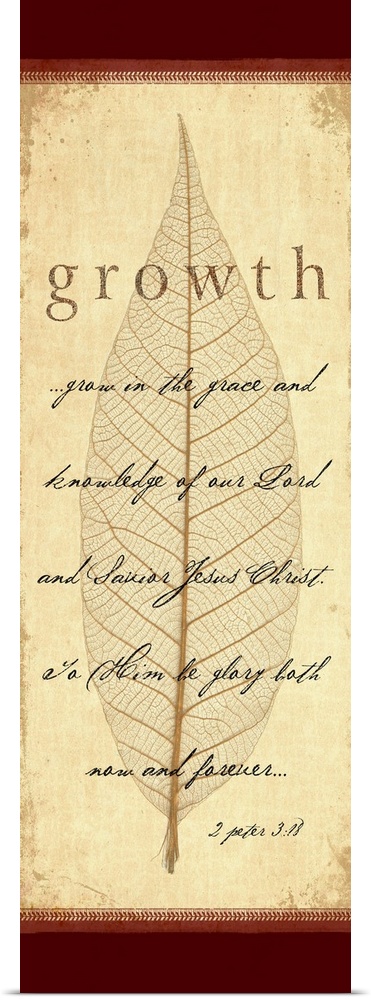 growth
...grow in the grace and
knowledge of our Lord
and Savior Jesus Christ.
To Him be glory both
now and forever...
2 peter 3:18